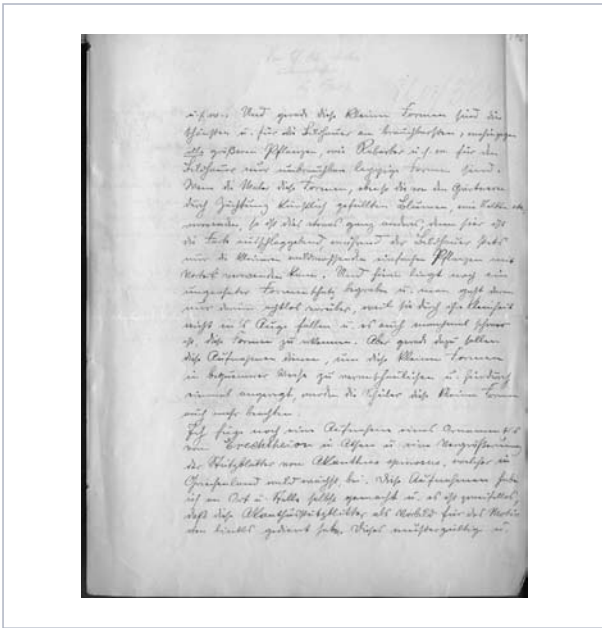 u.s.w. Und gerade diese kleinen Formen sind die
schönsten u. für die Bildhauer am brauchbarsten, wohingegen
alle größeren Pflanzen, wie Rhabarber u.s.w. für den
Bildhauer nur unbrauchbare lappige Formen sind.
Wenn die Maler diese Formen, ebenso die von den Gärtnern
durch Züchtung künstlich gefüllten Blumen, wie
verwenden, so ist dies etwas ganz anderes, denn hier ist
die Farbe ausschlaggebend, während der Bildhauer stets
nur die kleinen wildwachsenden einfachen Pflanzen mit
Vorteil verwenden kann. Und hierin liegt noch ein
ungeahnter Formenschatz begraben u. man geht dann
nur darum achtlos vorüber, weil sie durch ihre Kleinheit
nicht ins Auge fallen u. es auch manchmal schwer
ist, diese Formen zu erkennen. Aber gerade dazu sollen
diese Aufnahmen dienen, um diese kleinen Formen
in bequemer Weise zu veranschaulichen u. hierdurch
einmal angeregt, werden die Schüler diese kleinen Formen
auch mehr beachten.
Ich füge noch eine Aufnahme eines Ornamentes
vom Erechtheion in Athen u. eine Vergrößerung
der Stützblätter von Akanthus spinosus, welcher in
Griechenland wild wächst, bei. Diese Aufnahmen habe
ich an Ort u. Stelle selbst gemacht u. es ist zweifellos,
daß diese Akanthusstützblätter als Vorbild für das Motiv
gedient hat. Dieses mustergültige u.